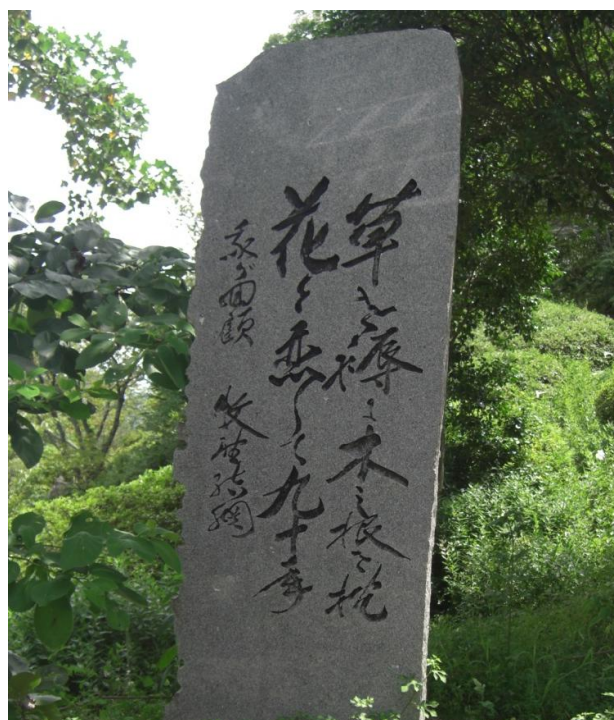 草を褥に木の根を枕
花と恋して九十年
我が回顧 牧野結網